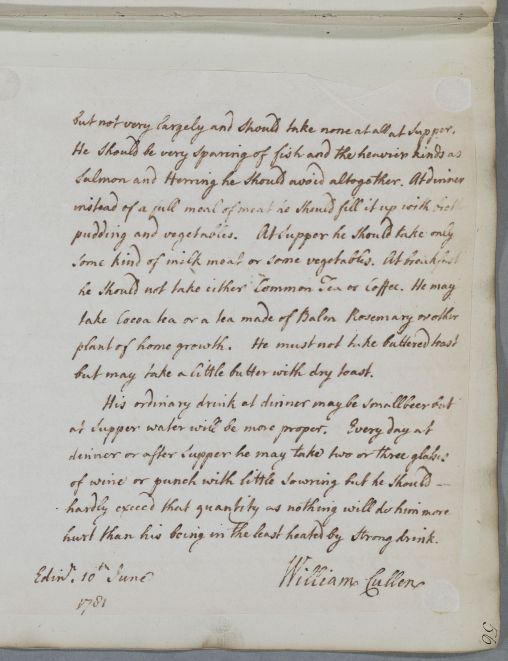 but not very largely and should take none at all at Supper.
He should be very sparing of fish and the heavier kinds as
Salmon and Herring he should avoid altogether. At dinner
instead of a full meal of meat he should fill it up with
pudding and vegetables. At Supper he should take only
some kind of milk meat or some vegetables. At breakfast
he should not take either Common Tea or Coffee. He may
take Cocoa tea or a tea made of Balm Rosemary or other
plant of home growth. He must not take buttered toast
but may take a little butter with dry toast.
His ordinary drink at dinner may be small beer but
at Supper water will be more proper. Every day at
dinner or after Supper he may take two or three glasses
of wine or punch with little souring but he should —
hardly exceed that quantity as nothing will do him more
hurt than his being in the least heated by strong drink.
Edinr. 10th June William Cullen
1781
56